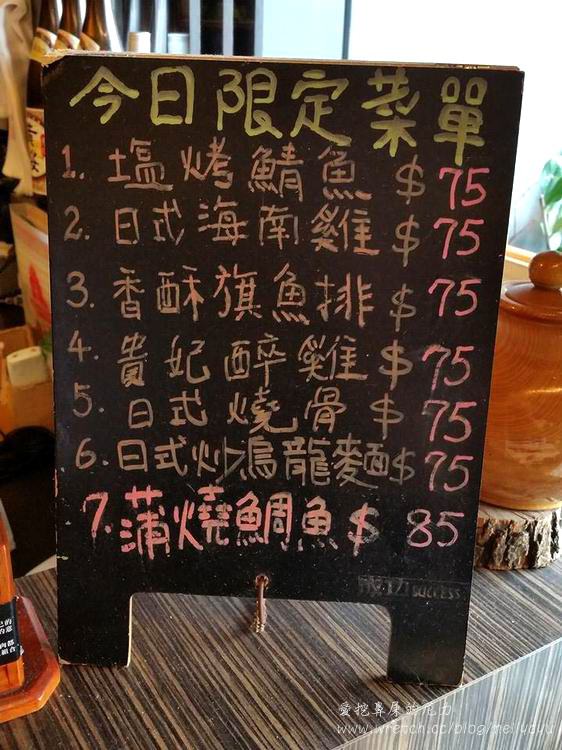 今日限定菜單
1. 塩烤鯖魚 $ 75
2. 日式海南雞 $ 75
3. 香酥旗魚排 $ 75
4. 貴妃醉雞 $ 75
5. 日式燒骨 $ 75
6. 日式炒烏龍麵 $ 75
7. 蒲燒鯛魚 $ 85
成功 SUCCESS
愛挖鼻屎的尼力
www.wretch.cc/blog/mellyduyu